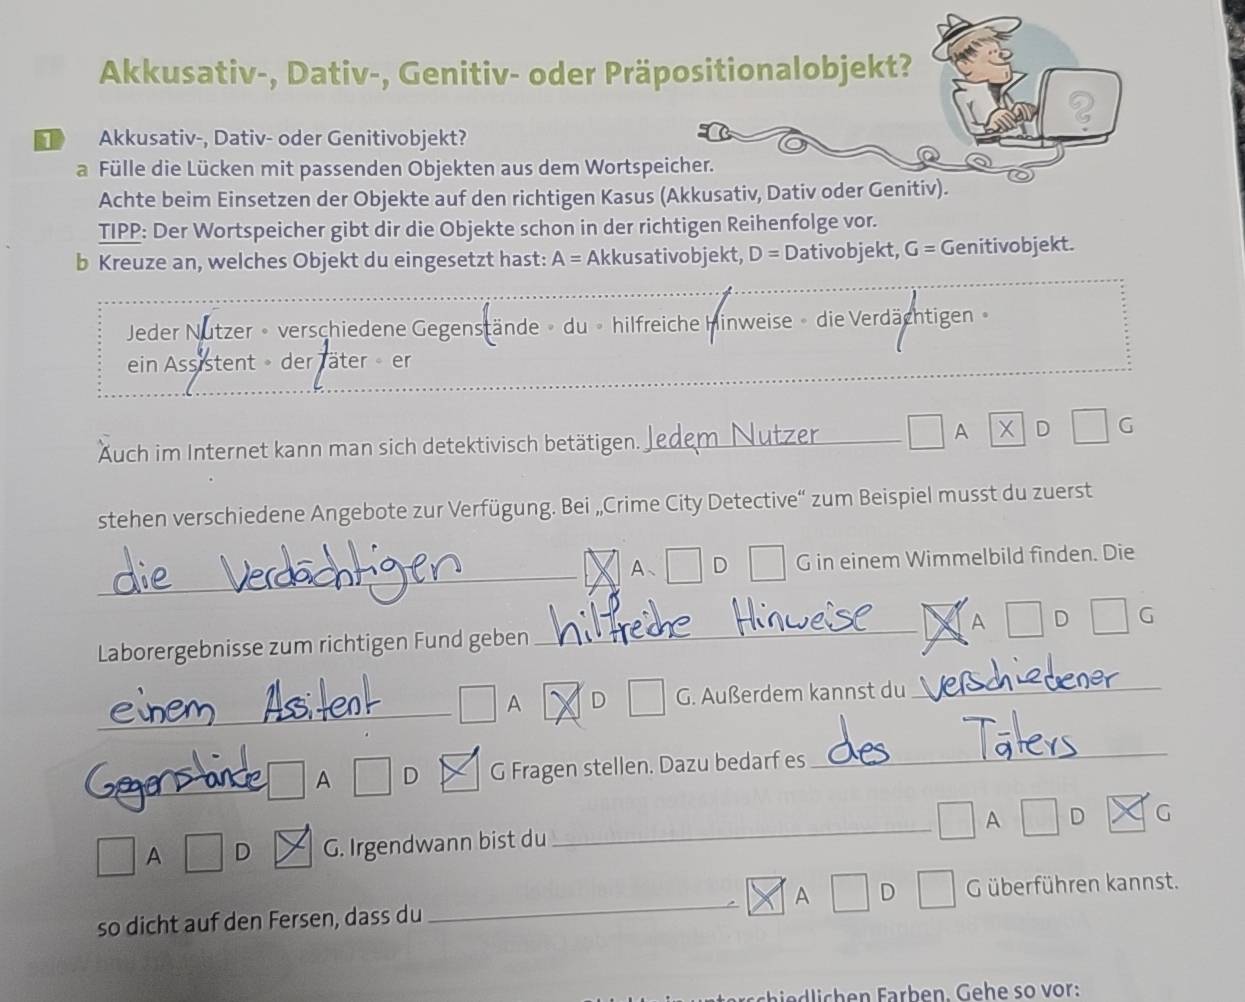 Akkusativ-, Dativ-, Genitiv- oder Präpositionalobjekt?
?
1 Akkusativ-, Dativ- oder Genitivobjekt?
a Fülle die Lücken mit passenden Objekten aus dem Wortspeicher.
Achte beim Einsetzen der Objekte auf den richtigen Kasus (Akkusativ, Dativ oder Genitiv).
TIPP: Der Wortspeicher gibt dir die Objekte schon in der richtigen Reihenfolge vor.
b Kreuze an, welches Objekt du eingesetzt hast: A = Akkusativobjekt, D = Dativobjekt, G = Genitivobjekt.
Jeder Nutzer • verschiedene Gegenstände • du • hilfreiche Hinweise • die Verdächtigen •
ein Assistent • der Täter • er
Auch im Internet kann man sich detektivisch betätigen. Jedem Nutzer A X D G
stehen verschiedene Angebote zur Verfügung. Bei „Crime City Detective“ zum Beispiel musst du zuerst
die Verdächtigen X A D G in einem Wimmelbild finden. Die
Laborergebnisse zum richtigen Fund geben hilfreiche Hinweise X A D G
einem Assitent A X D G. Außerdem kannst du verschiedener
Gegenstände A D X G Fragen stellen. Dazu bedarf es des Täters
A D X G. Irgendwann bist du A D X G
so dicht auf den Fersen, dass du X A D G überführen kannst.
unterschiedlichen Farben. Gehe so vor: